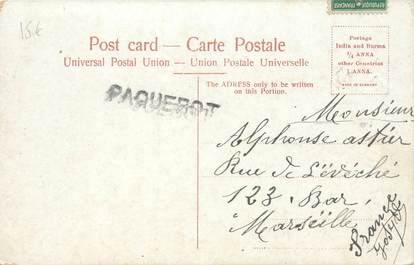 15€
REPUBLIQUE FRANÇAISE
Post card — Carte Postale
Universal Postal Union — Union Postale Universelle
Postage
India and Burma
¼ ANNA
other Countries
1 ANNA.
MADE IN GERMANY
The ADRESS only to be written
on this Portion.
PAQUEBOT
Monsieur
Alphonse astier
Rue de L'évêché
123. Bar.
Marseille
France